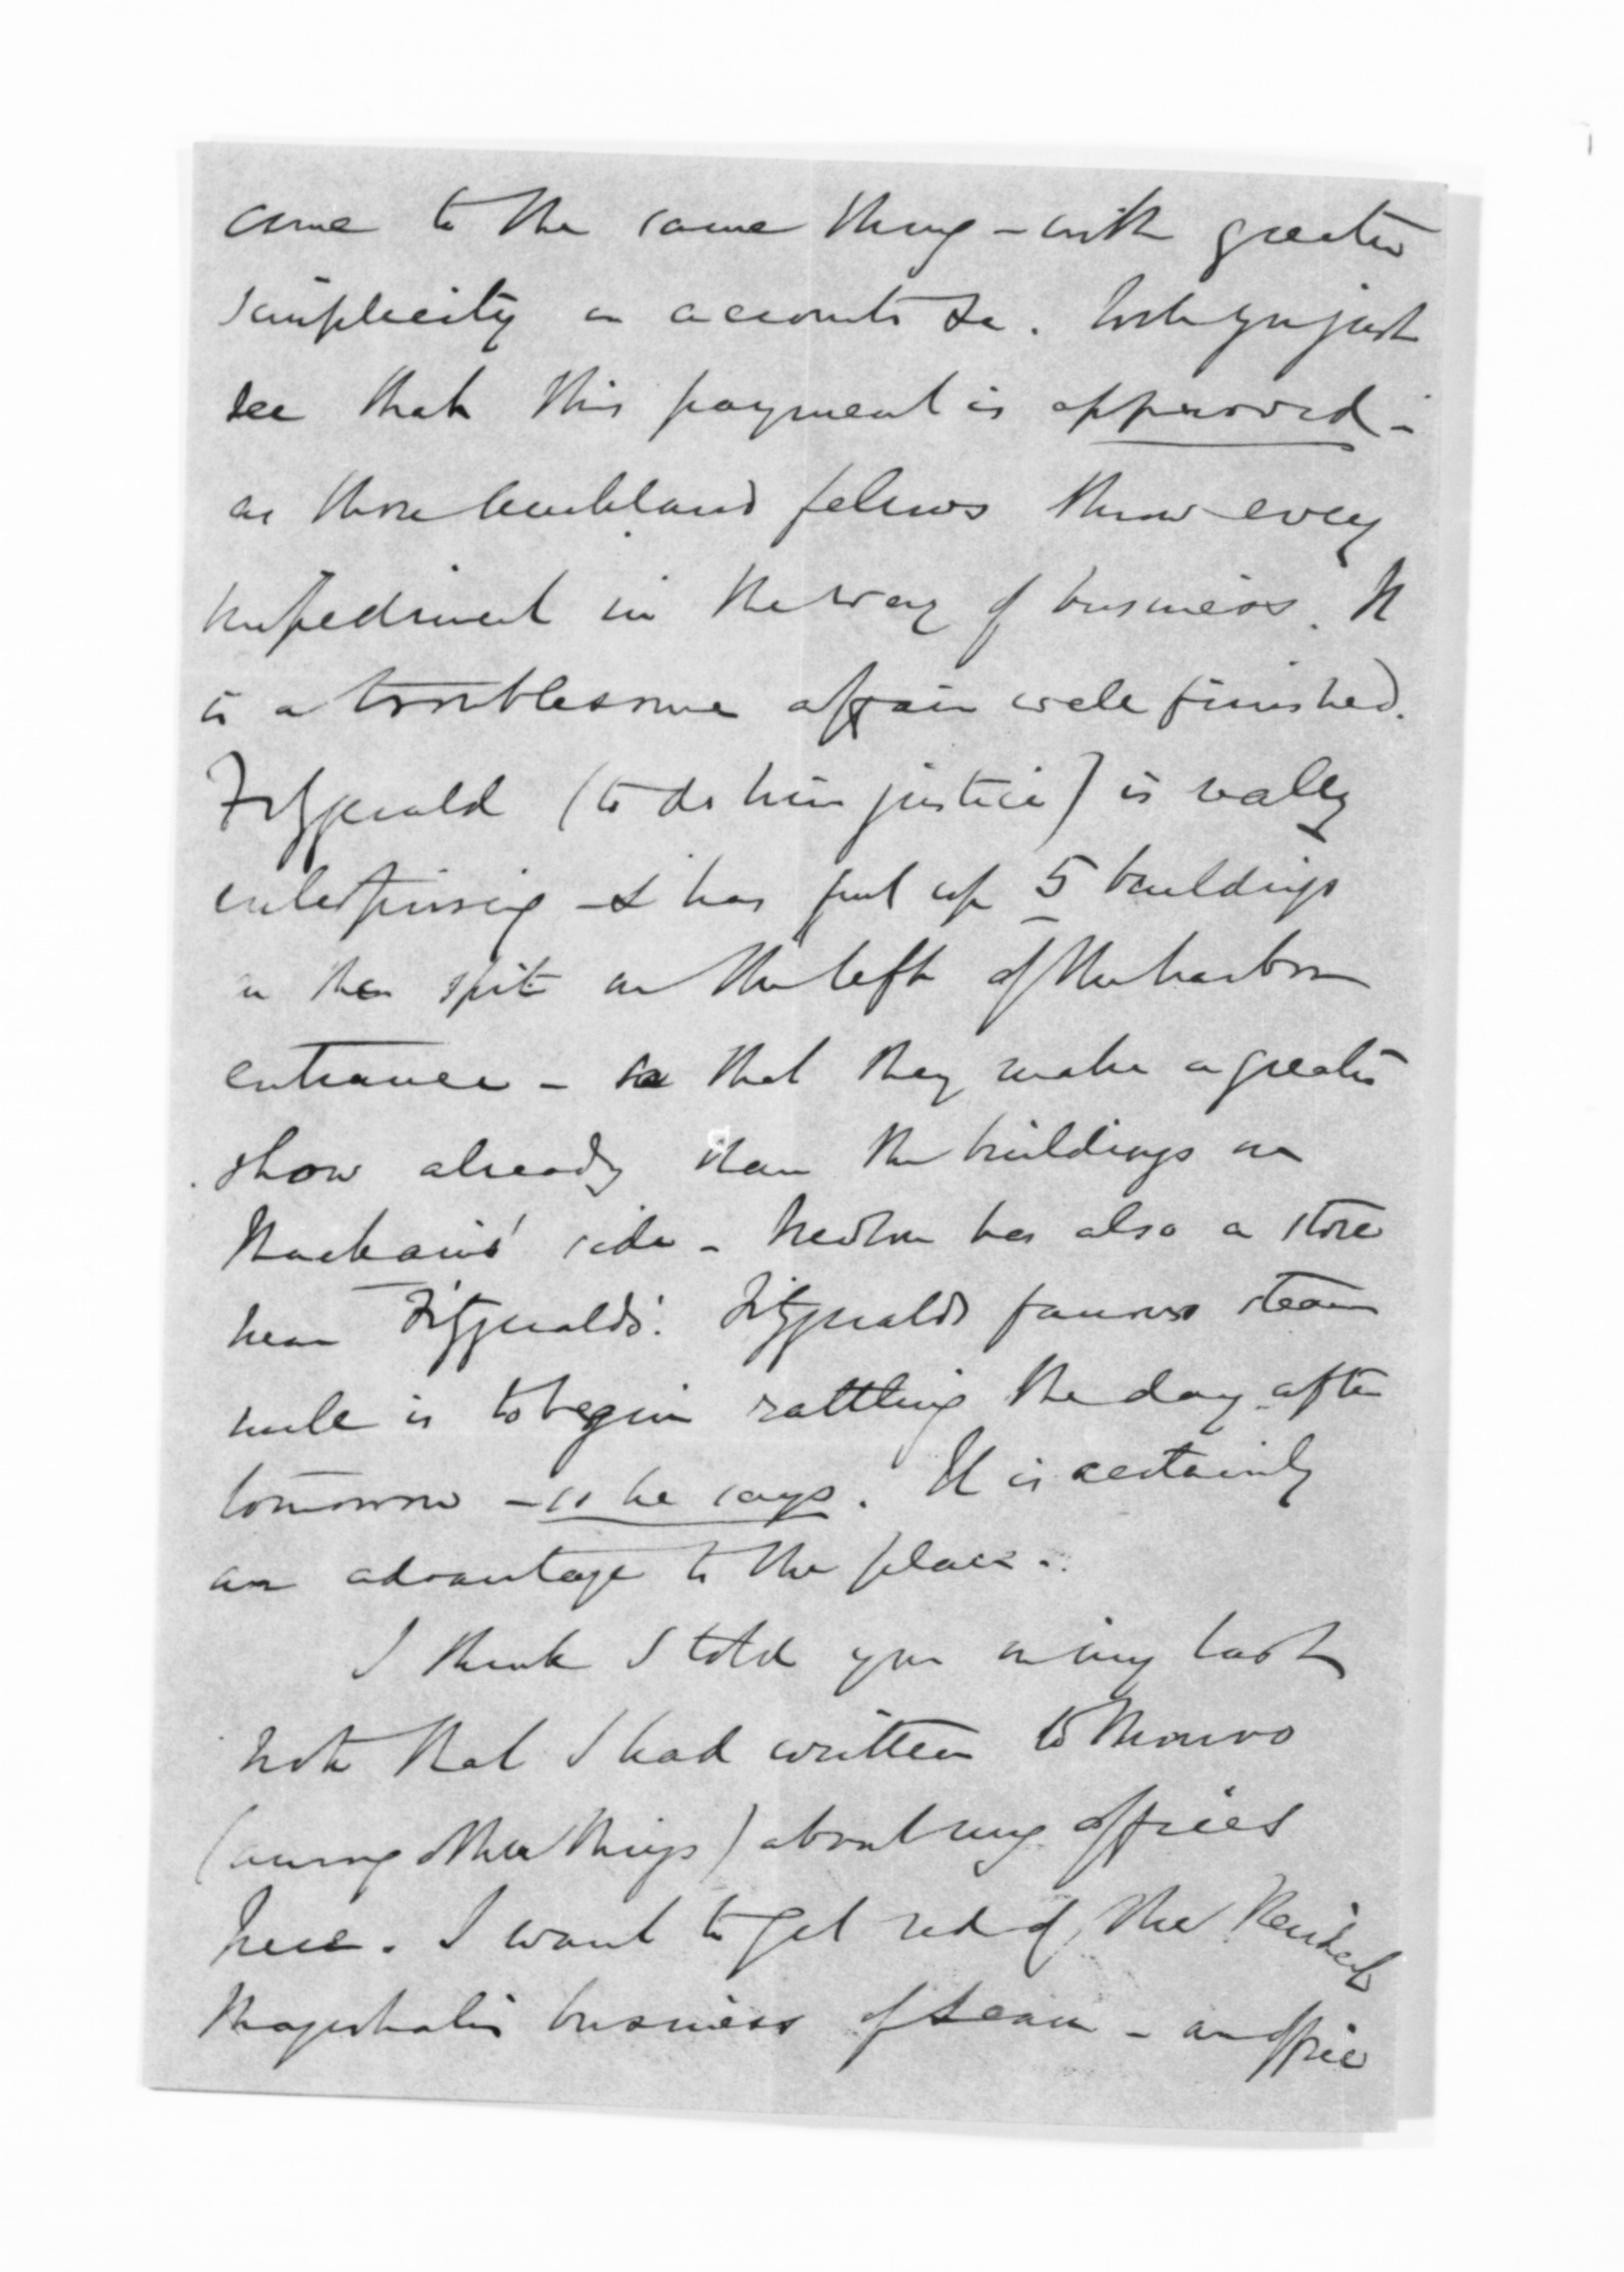 come to the same thing - with greater
simplicity in accounts &c. Will you just
see that this payment is approved -
as those Auckland fellows throw every
impediment in the way of business. It
is a troublesome affair well finished.
Fitzgerald (to do him justice) is really
enterprising - & has put up 5 buildings
on the spit on the left of the harbour
entrance - so that they make a greater
show already than the buildings on
side - has also a store
near Fitzgeralds'. Fitzgeralds famous steam
mill is to begin rattling the day after
tomorrow - so he says. It is certainly
an advantage to the place.
I think I told you in my last
note that I had written to Monro
(among other things) about my offices
here. I want to get rid of the Resident
Magistrate's business - an office